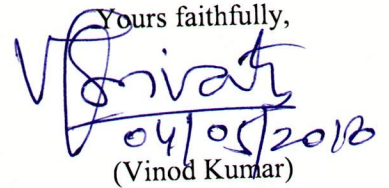 Yours faithfully,
04/05/2018
(Vinod Kumar)